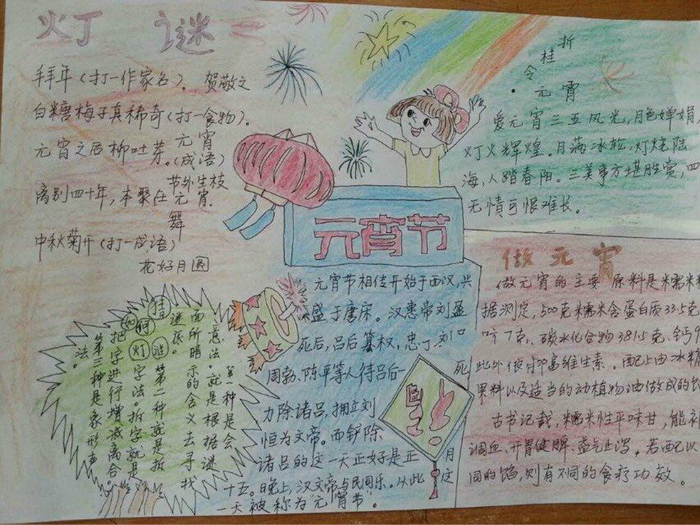 灯 谜
拜年(打一作家名)。贺敬之
白糖梅子真稀奇(打一食物)。
元宵
元宵之后柳吐芽。(成语)
节外生枝
离别四十年,本聚在元宵。
舞
中秋菊开(打一成语)
花好月圆
折
桂
令
元宵
爱元宵三五风光,月色婵娟,
灯火辉煌。月满冰轮,灯烧陆
海,人踏春阳。三美事方堪胜赏,四
无情可恨难长。
元宵节
元宵节相传开始于西汉,兴
盛于唐宋。汉惠帝刘盈
死后,吕后篡权,
周勃、陈平等人待吕后一
死
力除诸吕,拥立刘
恒为文帝。而铲除
诸吕的这一天正好是正
月
十五。晚上,汉文帝与民同乐。从此
这
一天被称为“元宵节”。
做元宵
做元宵的主要原料是糯米
据测定,500克糯米含蛋白质33.5克
碳水化合物381.5克、钙
此外
富维生素。配上由冰糖
果料以及适当的动植物油做成的
古书记载,糯米性平味甘,能补
调血、开胃健脾、益气止泻。若配以
同的馅,则有不同的食疗功效。
第一种是会
意法,就是根据谜
面所暗示的含义去寻找
谜底。
第二种就是拆
字法。拆字就是
把字进行增减离合。
第三种是象形
法。
猜灯谜